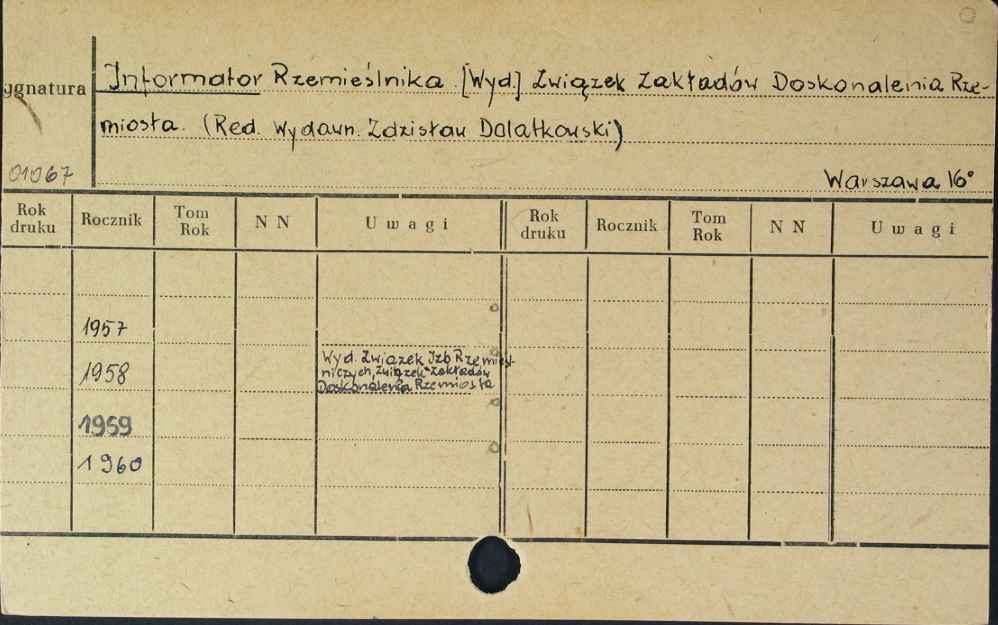 ygnatura
Informator Rzemieślnika. [Wyd.] Związek Zakładów Doskonalenia Rze-
miosła. (Red. Wydawn. Zdzisław Dolatkowski)
01067
Warszawa 16°
Rok druku Rocznik Tom Rok N N Uwagi Rok druku Rocznik Tom Rok N N Uwagi
1957
1958
Wyd. Związek Izb Rzemieś-
niczych, Związek Zakładów
Doskonalenia Rzemiosła
1959
1960